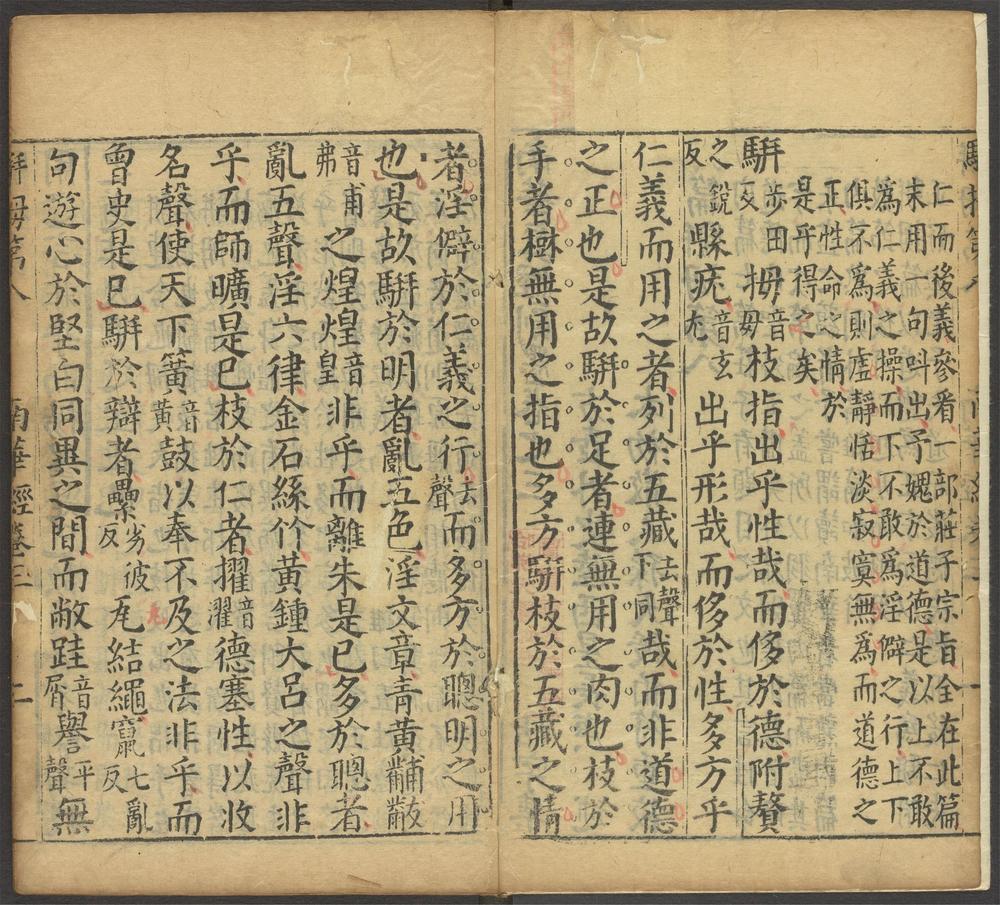 仁而後義參看一部莊子宗旨全在此篇
末用一句叫出予媿於道德是以上不敢
爲仁義之操而下不敢爲淫僻之行上下
俱不爲則虛靜恬淡寂寞無爲而道德之
正性命之情於
是乎得之矣
騈步田反拇音母枝指出乎性哉而侈於德附贅
之銳反縣疣音玄尤出乎形哉而侈於性多方乎
仁義而用之者列於五藏去聲下同哉而非道德
之正也是故騈於足者連無用之肉也枝於
手者樹無用之指也多方騈枝於五藏之情
者淫僻於仁義之行去聲而多方於聰明之用
也是故騈於明者亂五色淫文章青黃黼黻
音甫弗之煌煌音皇非乎而離朱是已多於聰者
亂五聲淫六律金石絲竹黃鍾大呂之聲非
乎而師曠是已枝於仁者擢音濯德塞性以收
名聲使天下簧音黃鼓以奉不及之法非乎而
曾史是已騈於辯者纍劣彼反瓦結繩竄七亂反
句遊心於堅白同異之間而敝跬音屑譽平聲無
南華經卷三
二